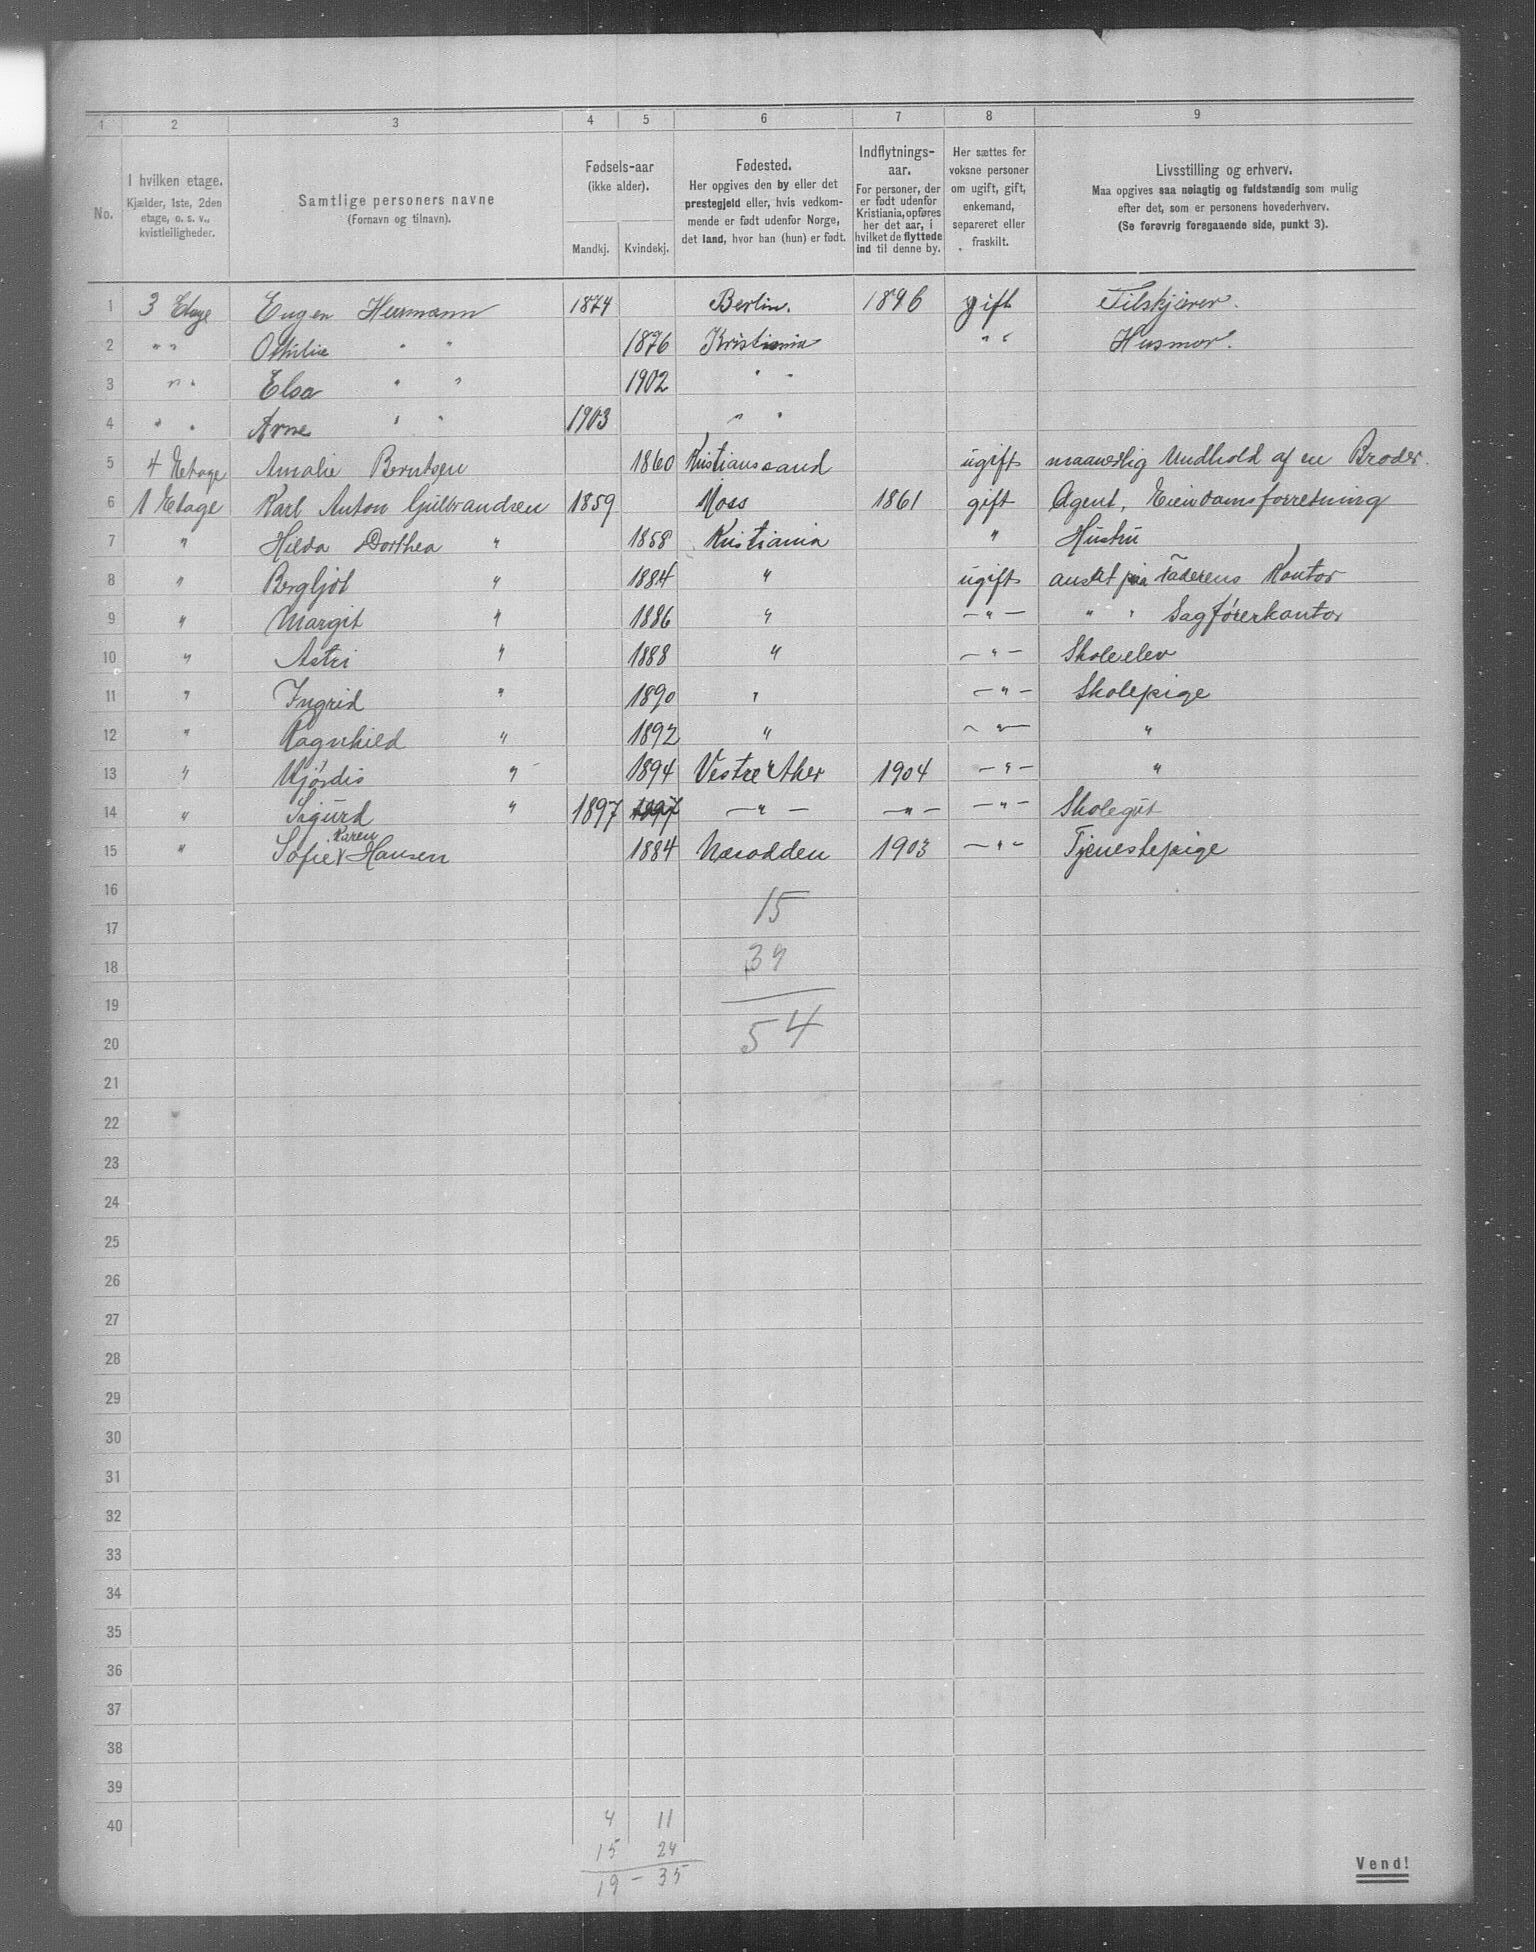 1 2 3 4 5 6 7 8 9
No.
I hvilken etage.
Kjælder, 1ste, 2den
etage, o. s. v.,
kvistleiligheder.
Samtlige personers navne
(Fornavn og tilnavn).
Fødsels-aar
(ikke alder).
Mandkj. Kvindekj.
Fødested.
Her opgives den by eller det
prestegjeld eller, hvis vedkom-
mende er født udenfor Norge,
det land, hvor han (hun) er født.
Indflytnings-
aar.
For personer, der
er født udenfor
Kristiania, opføres
her det aar, i
hvilket de flyttede
ind til denne by.
Her sættes for
voksne personer
om ugift, gift,
enkemand,
separeret eller
fraskilt.
Livsstilling og erhverv.
Maa opgives saa nøiagtig og fuldstændig som mulig
efter det, som er personens hovederhverv.
(Se forøvrig foregaaende side, punkt 3).
1 3 Etage Eugen Hermann 1874 Berlin. 1896 gift Tilskjærer.
2 " " Othilie " " 1876 Kristiania " " Husmor.
3 " " Elsa " " 1902 " "
4 " " Arne " " 1903 " "
5 4 Etage Amalie Berntsen 1860 Kristianssand ugift maanedlig Undhold af en Broder.
6 1 Etage Karl Anton Gulbrandsen 1859 Moss 1861 gift Agent, Eiendomsforretning
7 " Hilda Dorthea " 1858 Kristiania " Hustru
8 " Bergljot " 1884 " ugift ansat paa Faderens Kontor
9 " Margit " 1886 " — " — " " Sagførerkontor
10 " Astri " 1888 " — " — Skoleelev
11 " Ingrid " 1890 " — " — Skolepige
12 " Ragnhild " 1892 " — " — "
13 " Hjørdis " 1894 Vestre Aker 1904 — " — "
14 " Sigurd " 1897 1897 — " — — " — — " — Skolegut
Karen
15 " Sofie Hansen 1884 Næsodden 1903 — " — Tjenestepige
16
15
17
18
39
19
20
54
21
22
23
24
25
26
27
28
29
30
31
32
33
34
35
36
37
38
39
40
4 11
15 24
19 — 35
Vend!